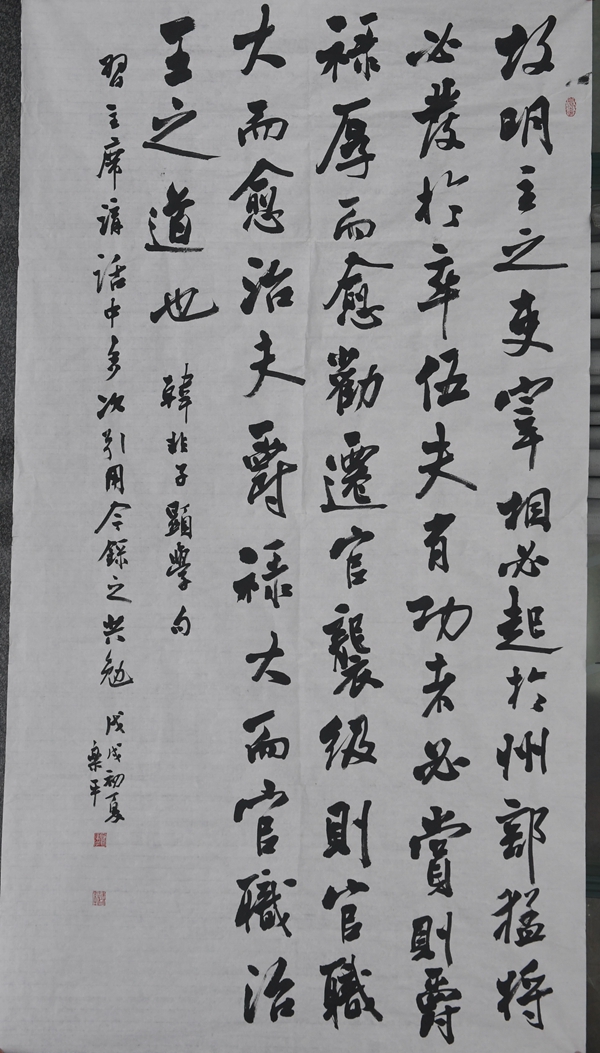 故明主之吏宰相必起於州部猛将
必發於卒伍夫有功者必賞則爵
禄厚而愈勸遷官襲级則官職
大而愈治夫爵禄大而官職治
王之道也
韓非子顯學句
習主席講話中多次引用今錄之共勉
戊戌初夏
平